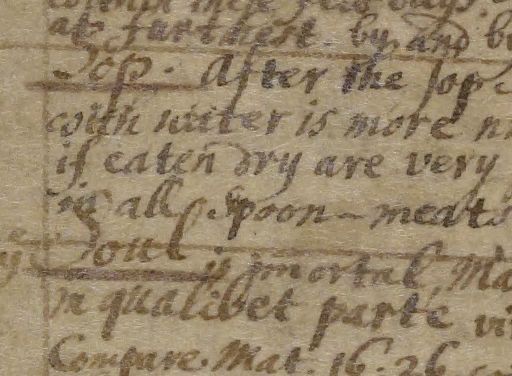 at furthest. by, and b
Sop. After the sop
with water is more n
if eaten dry are very
in all Spoon-meats
Soul is jmortal, Ma
in qualibet parte vi
Compare. Mat. 16. 26